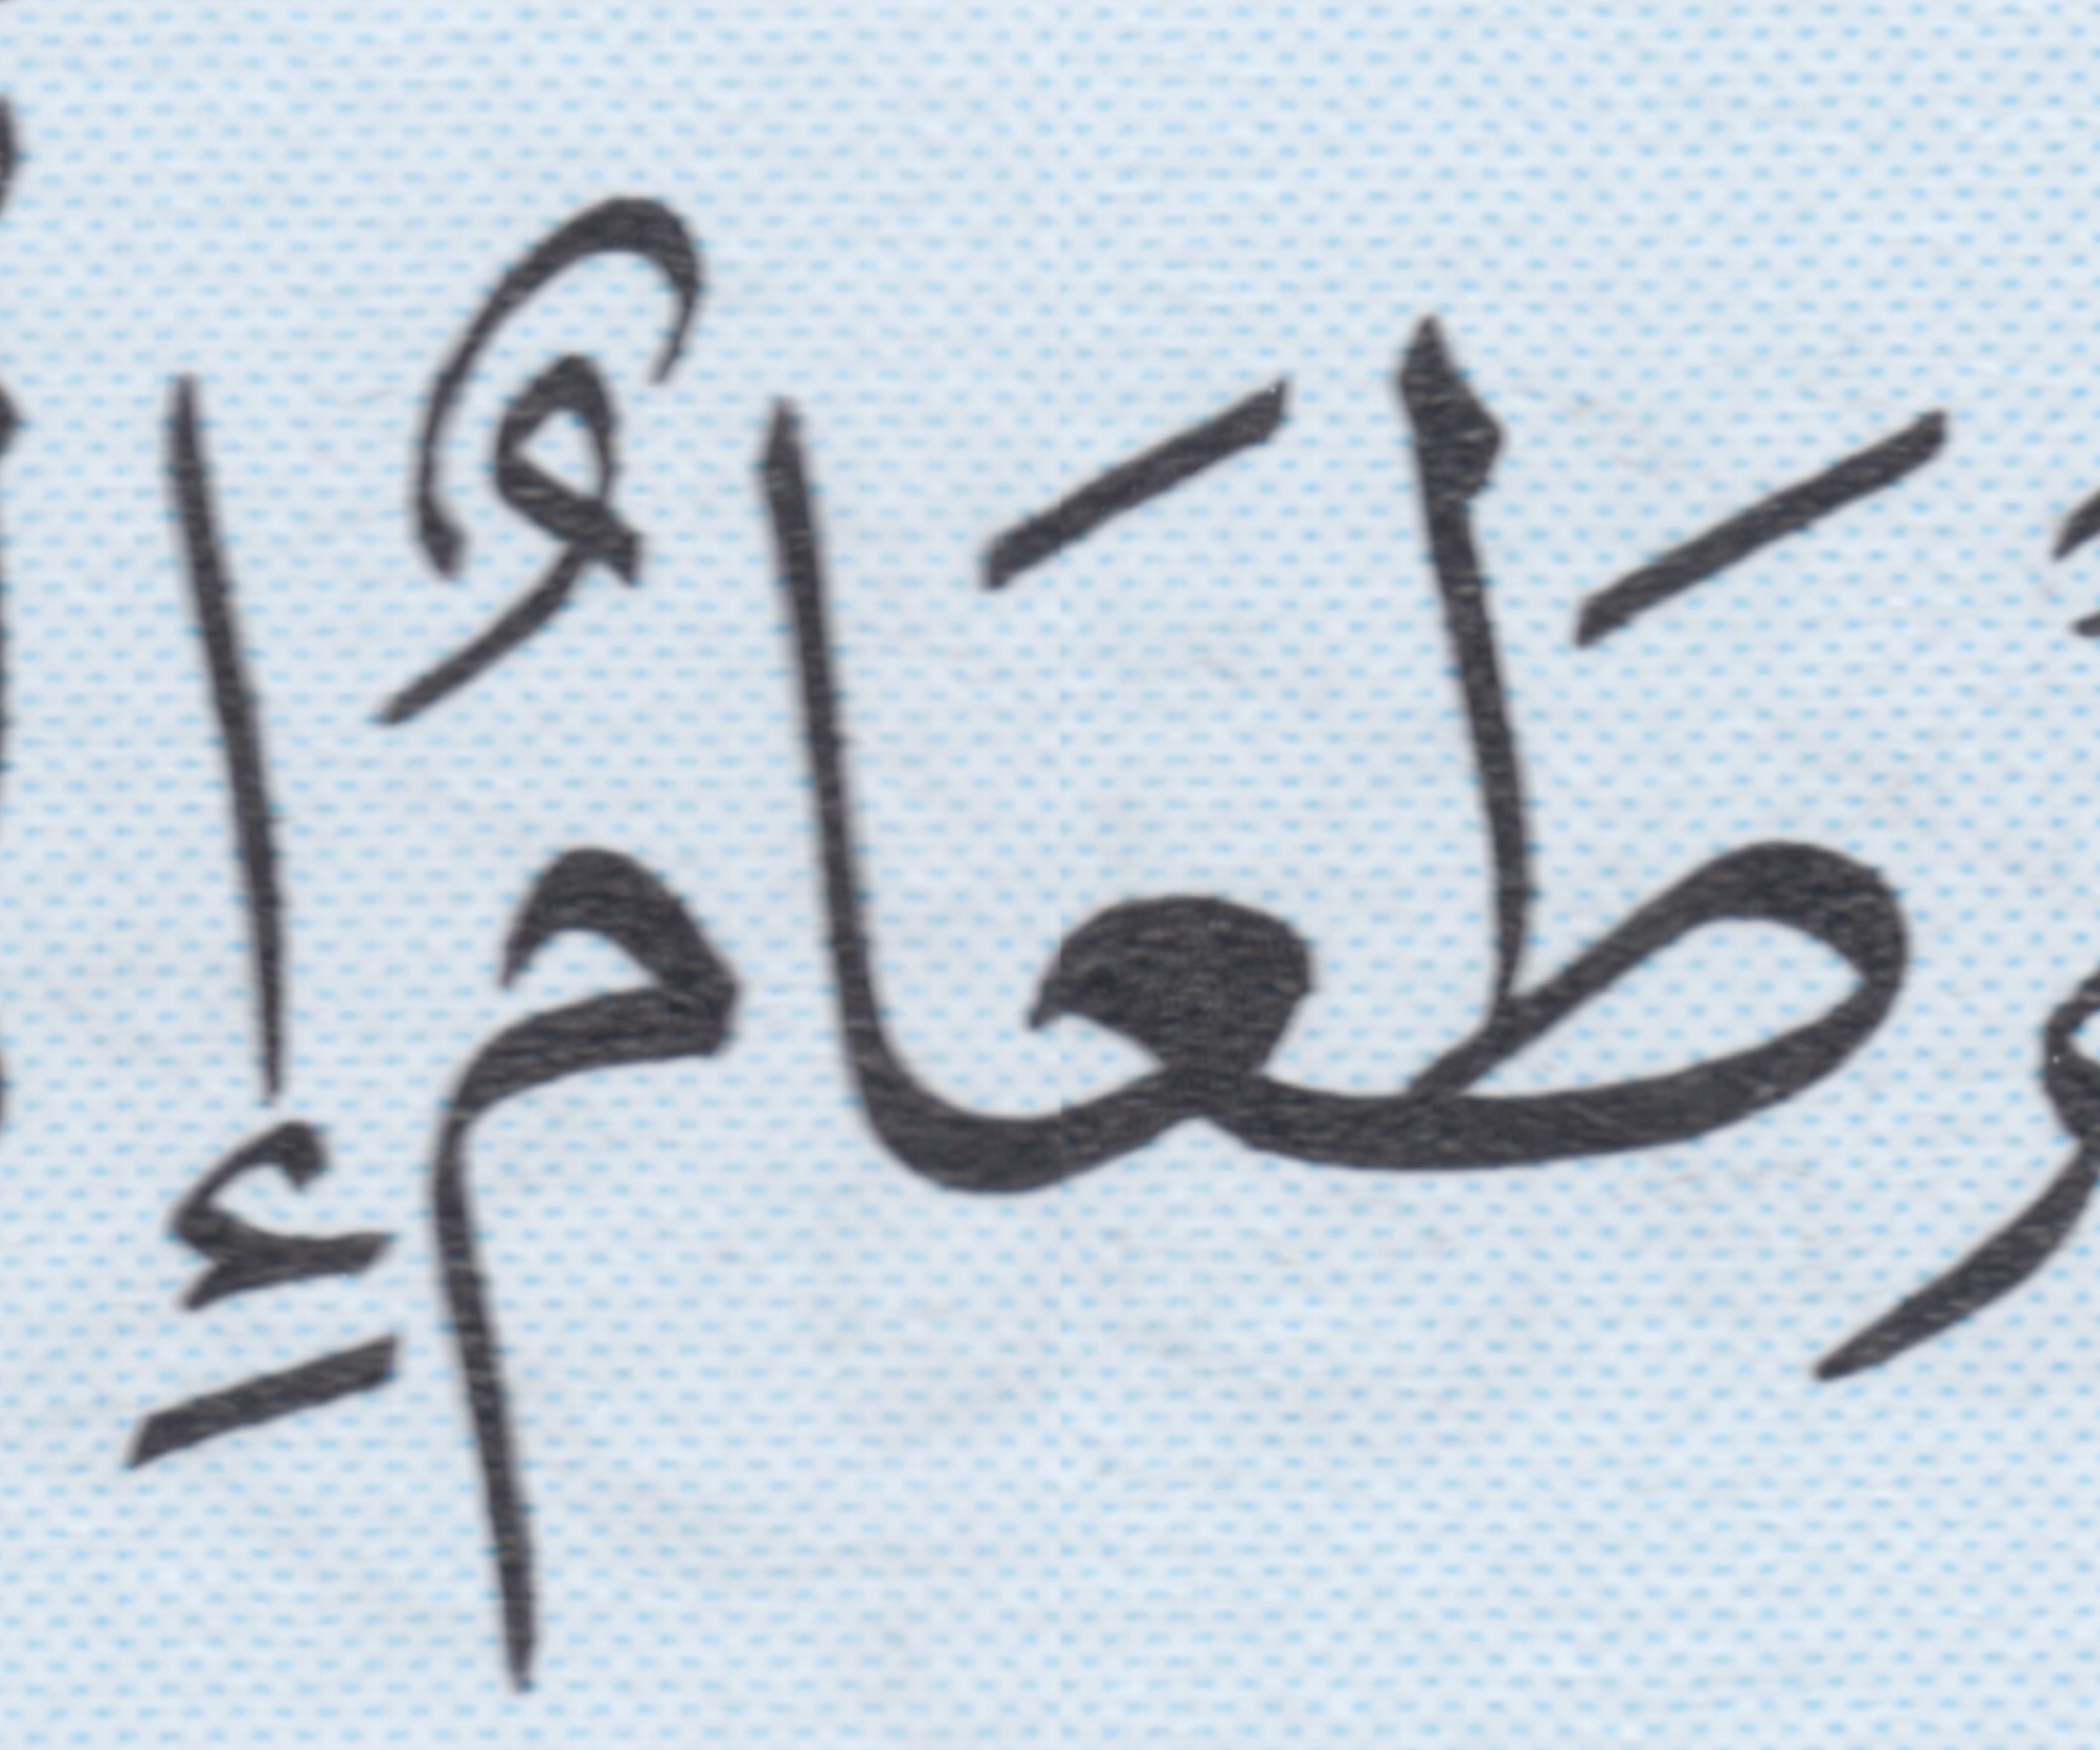 طَعَامٌ إِ